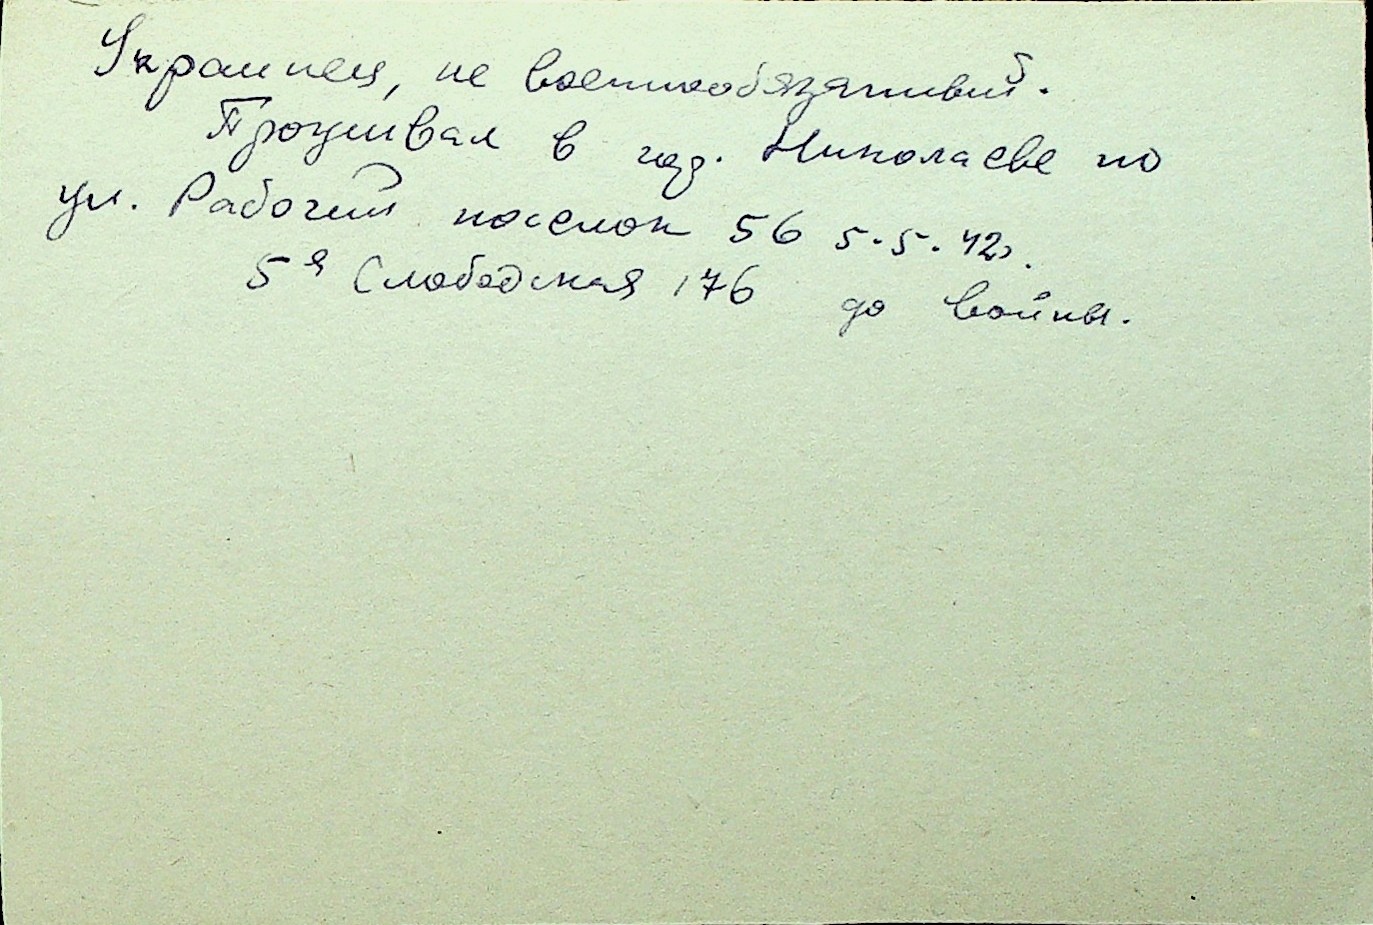 Украинец, не военнообязанный.
Проживал в гор. Николаеве по
ул. Рабочий поселок 56 5.5.42г.
5я Слободская 176 до войны.